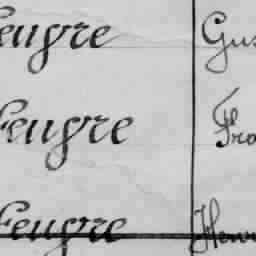 Feugre Gus
Feugre Fra
Feugre Henri